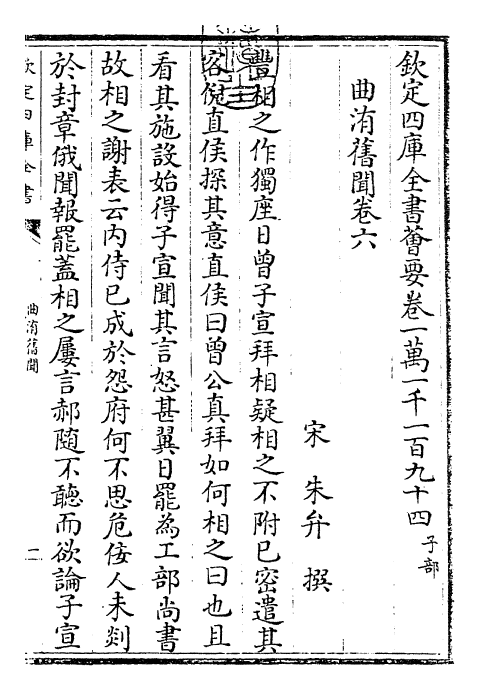 欽定四庫全書薈要卷一萬一千一百九十四 子部
曲洧舊聞卷六
宋 朱弁 撰
豐相之作獨座日曾子宣拜相疑相之不附已密遣其
客倪直侯探其意直侯曰曾公真拜如何相之曰也且
看其施設始得子宣聞其言怒甚翼日罷為工部尚書
故相之謝表云内侍已成於怨府何不思危佞人未剡
於封章俄聞報罷蓋相之屢言郝隨不聽而欲論子宣
欽定四庫全書
曲洧舊聞
一